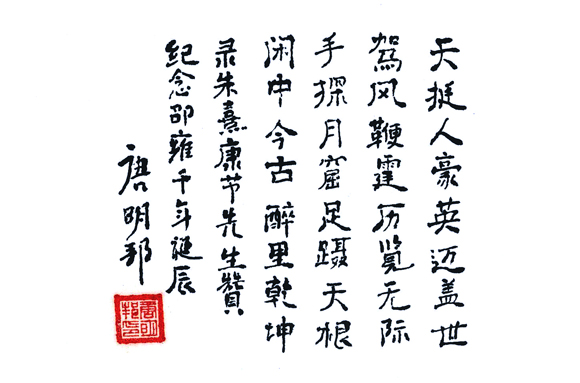 天挺人豪英迈盖世
驾风鞭霆历览无际
手探月窟足蹑天根
闲中今古醉里乾坤
录朱熹康节先生赞
纪念邵雍千年诞辰
唐明邦
唐明邦印